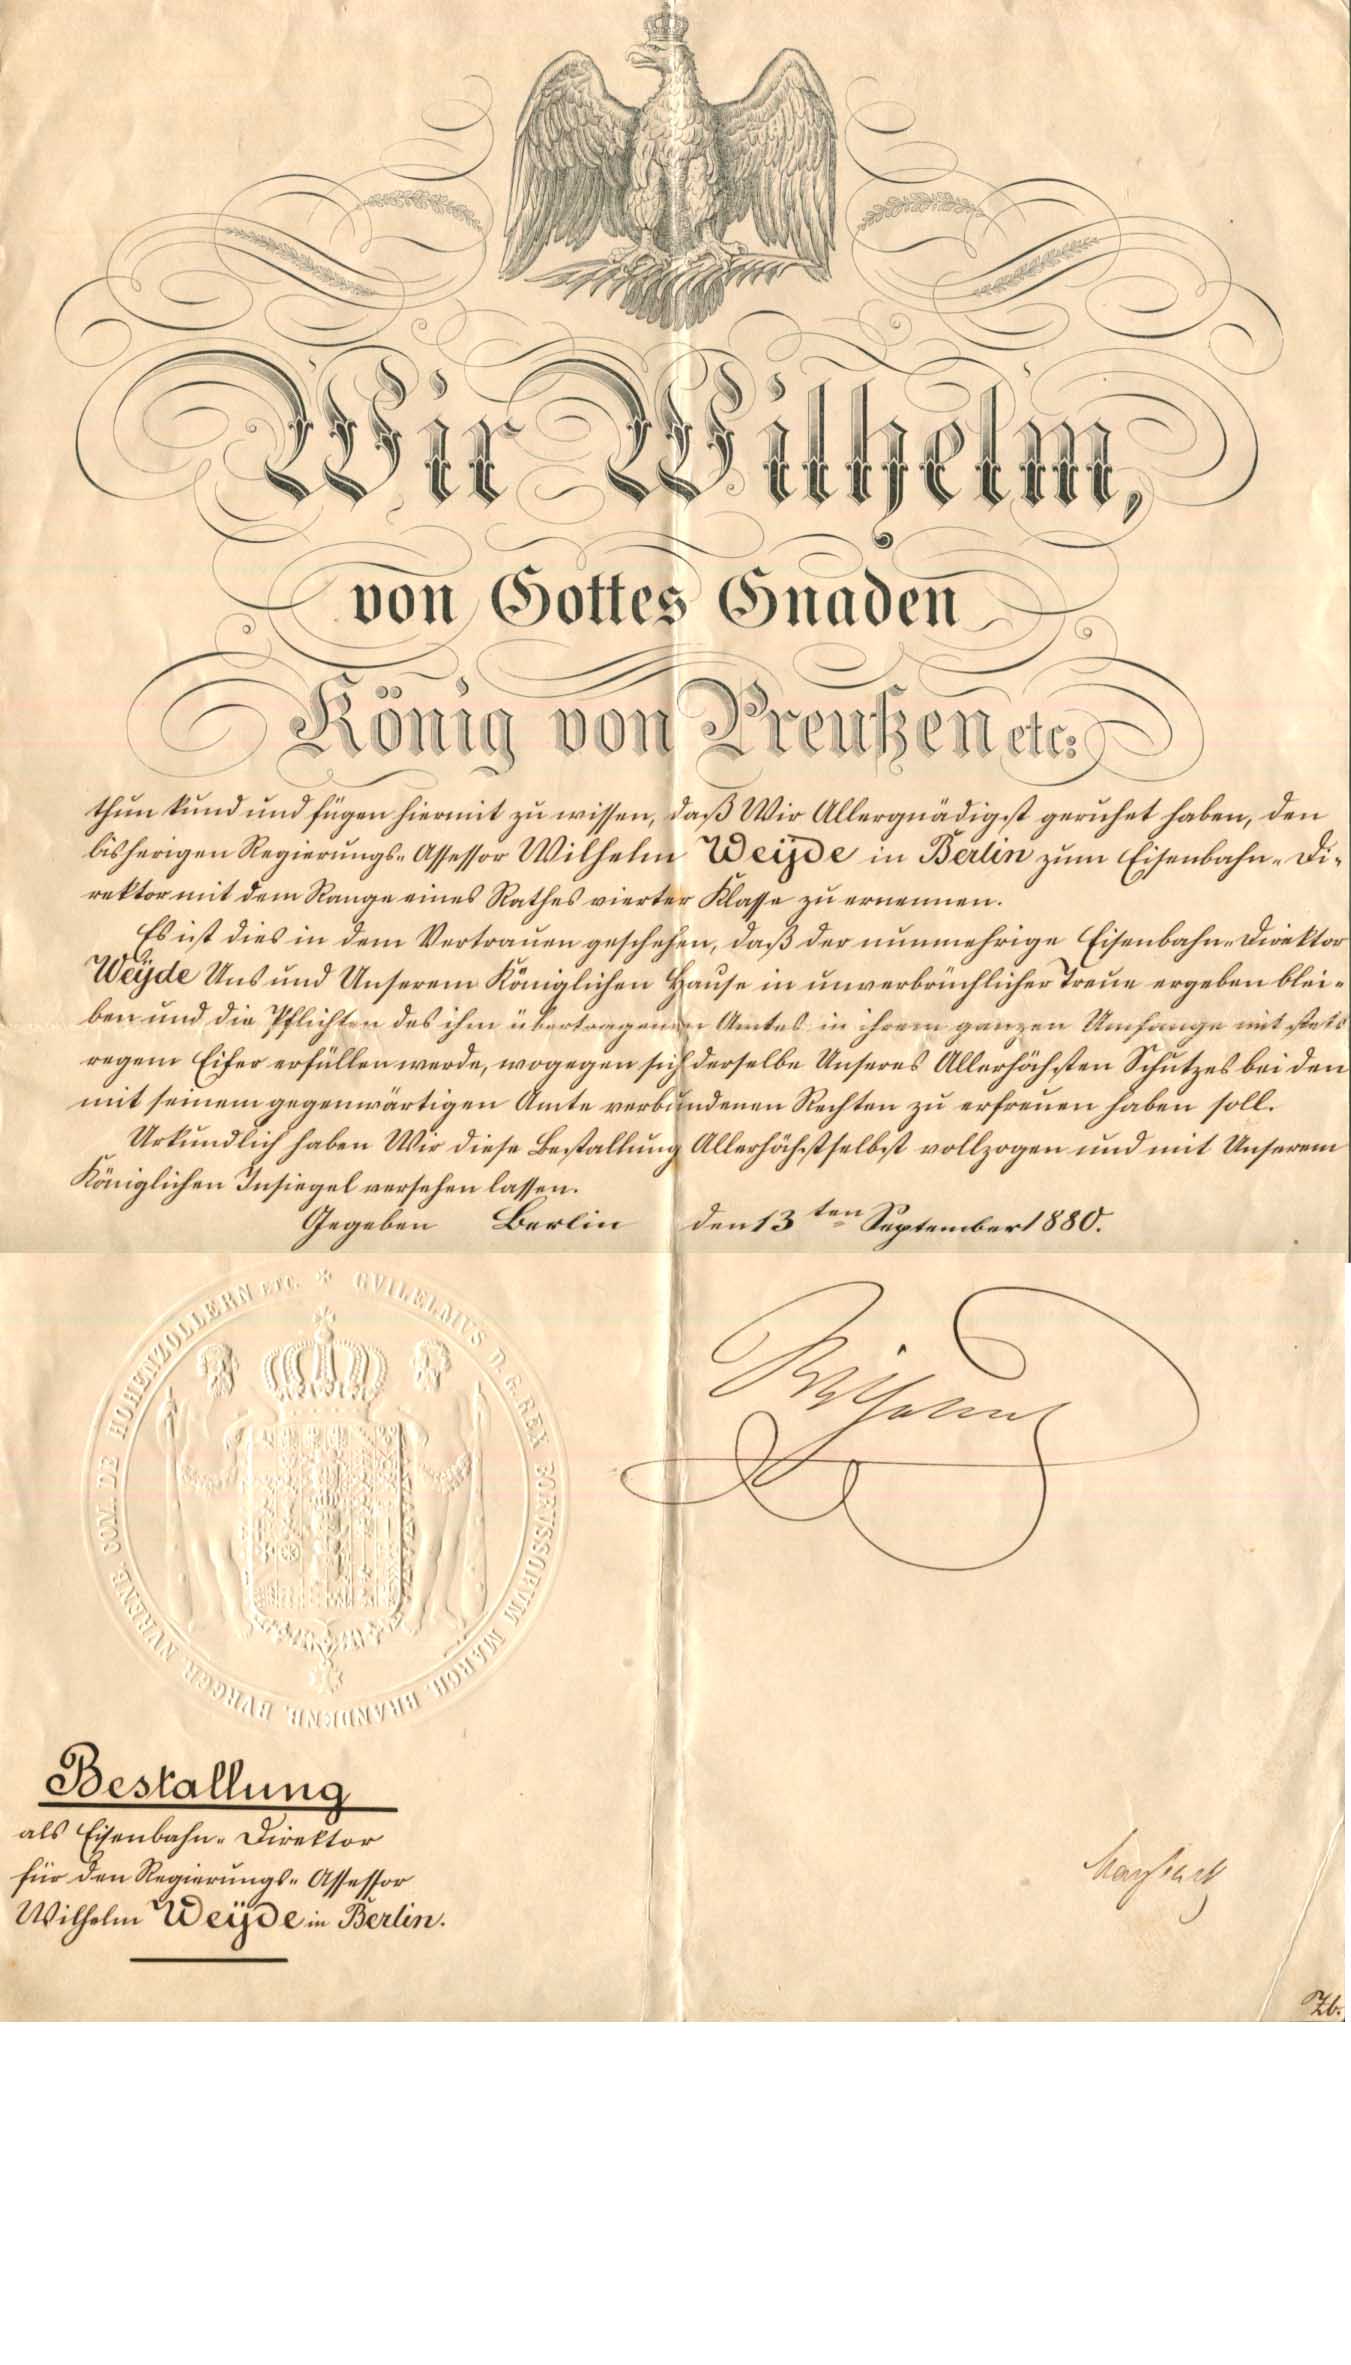 Wir Wilhelm,
von Gottes Gnaden
König von Preußen etc:
thun kund und fügen hiermit zu wissen, daß Wir Allergnädigst geruhet haben, den
bisherigen Regierungs-Assessor Wilhelm Weÿde in Berlin zum Eisenbahn-Di-
rektor mit dem Range eines Rathes vierter Klasse zu ernennen.
Es ist dies in dem Vertrauen geschehen, daß der nunmehrige Eisenbahn-Direktor
Weÿde Uns und Unserem Königlichen Hause in unverbrüchlicher Treue ergeben blei-
ben und die Pflichten des ihm übertragenen Amtes in ihrem ganzen Umfange mit stets
regem Eifer erfüllen werde, wogegen sich derselbe Unseres Allerhöchsten Schutzes bei den
mit seinem gegenwärtigen Amte verbundenen Rechten zu erfreuen haben soll.
Urkundlich haben Wir diese Bestallung Allerhöchstselbst vollzogen und mit Unserem
Königlichen Insiegel versehen lassen.
Gegeben Berlin den 13ten September 1880.
GVILELMVS D. G. REX BORVSSORVM MARCH. BRANDENB. BVRGGR. NVRENB. COM. DE HOHENZOLLERN ETC.
Wilhelm
Bestallung
als Eisenbahn-Direktor
für den Regierungs-Assessor
Wilhelm Weÿde in Berlin.
Maybach